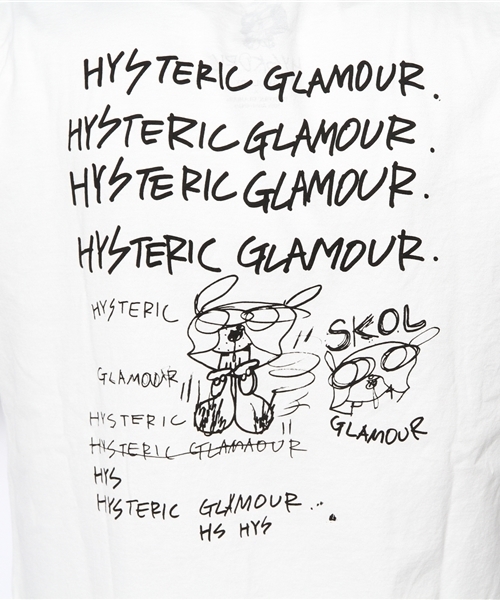 HYSTERIC GLAMOUR.
HYSTERIC GLAMOUR.
HYSTERIC GLAMOUR.
HYSTERIC GLAMOUR.
HYSTERIC
SKOL
GLAMOUR
HYSTERIC
GLAMOUR
HYSTERIC GLAMAOUR
HYS
HYSTERIC GLAMOUR...
HS HYS